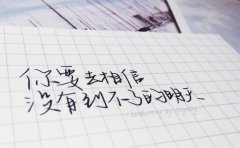 你要去相信
没有到不了的明天